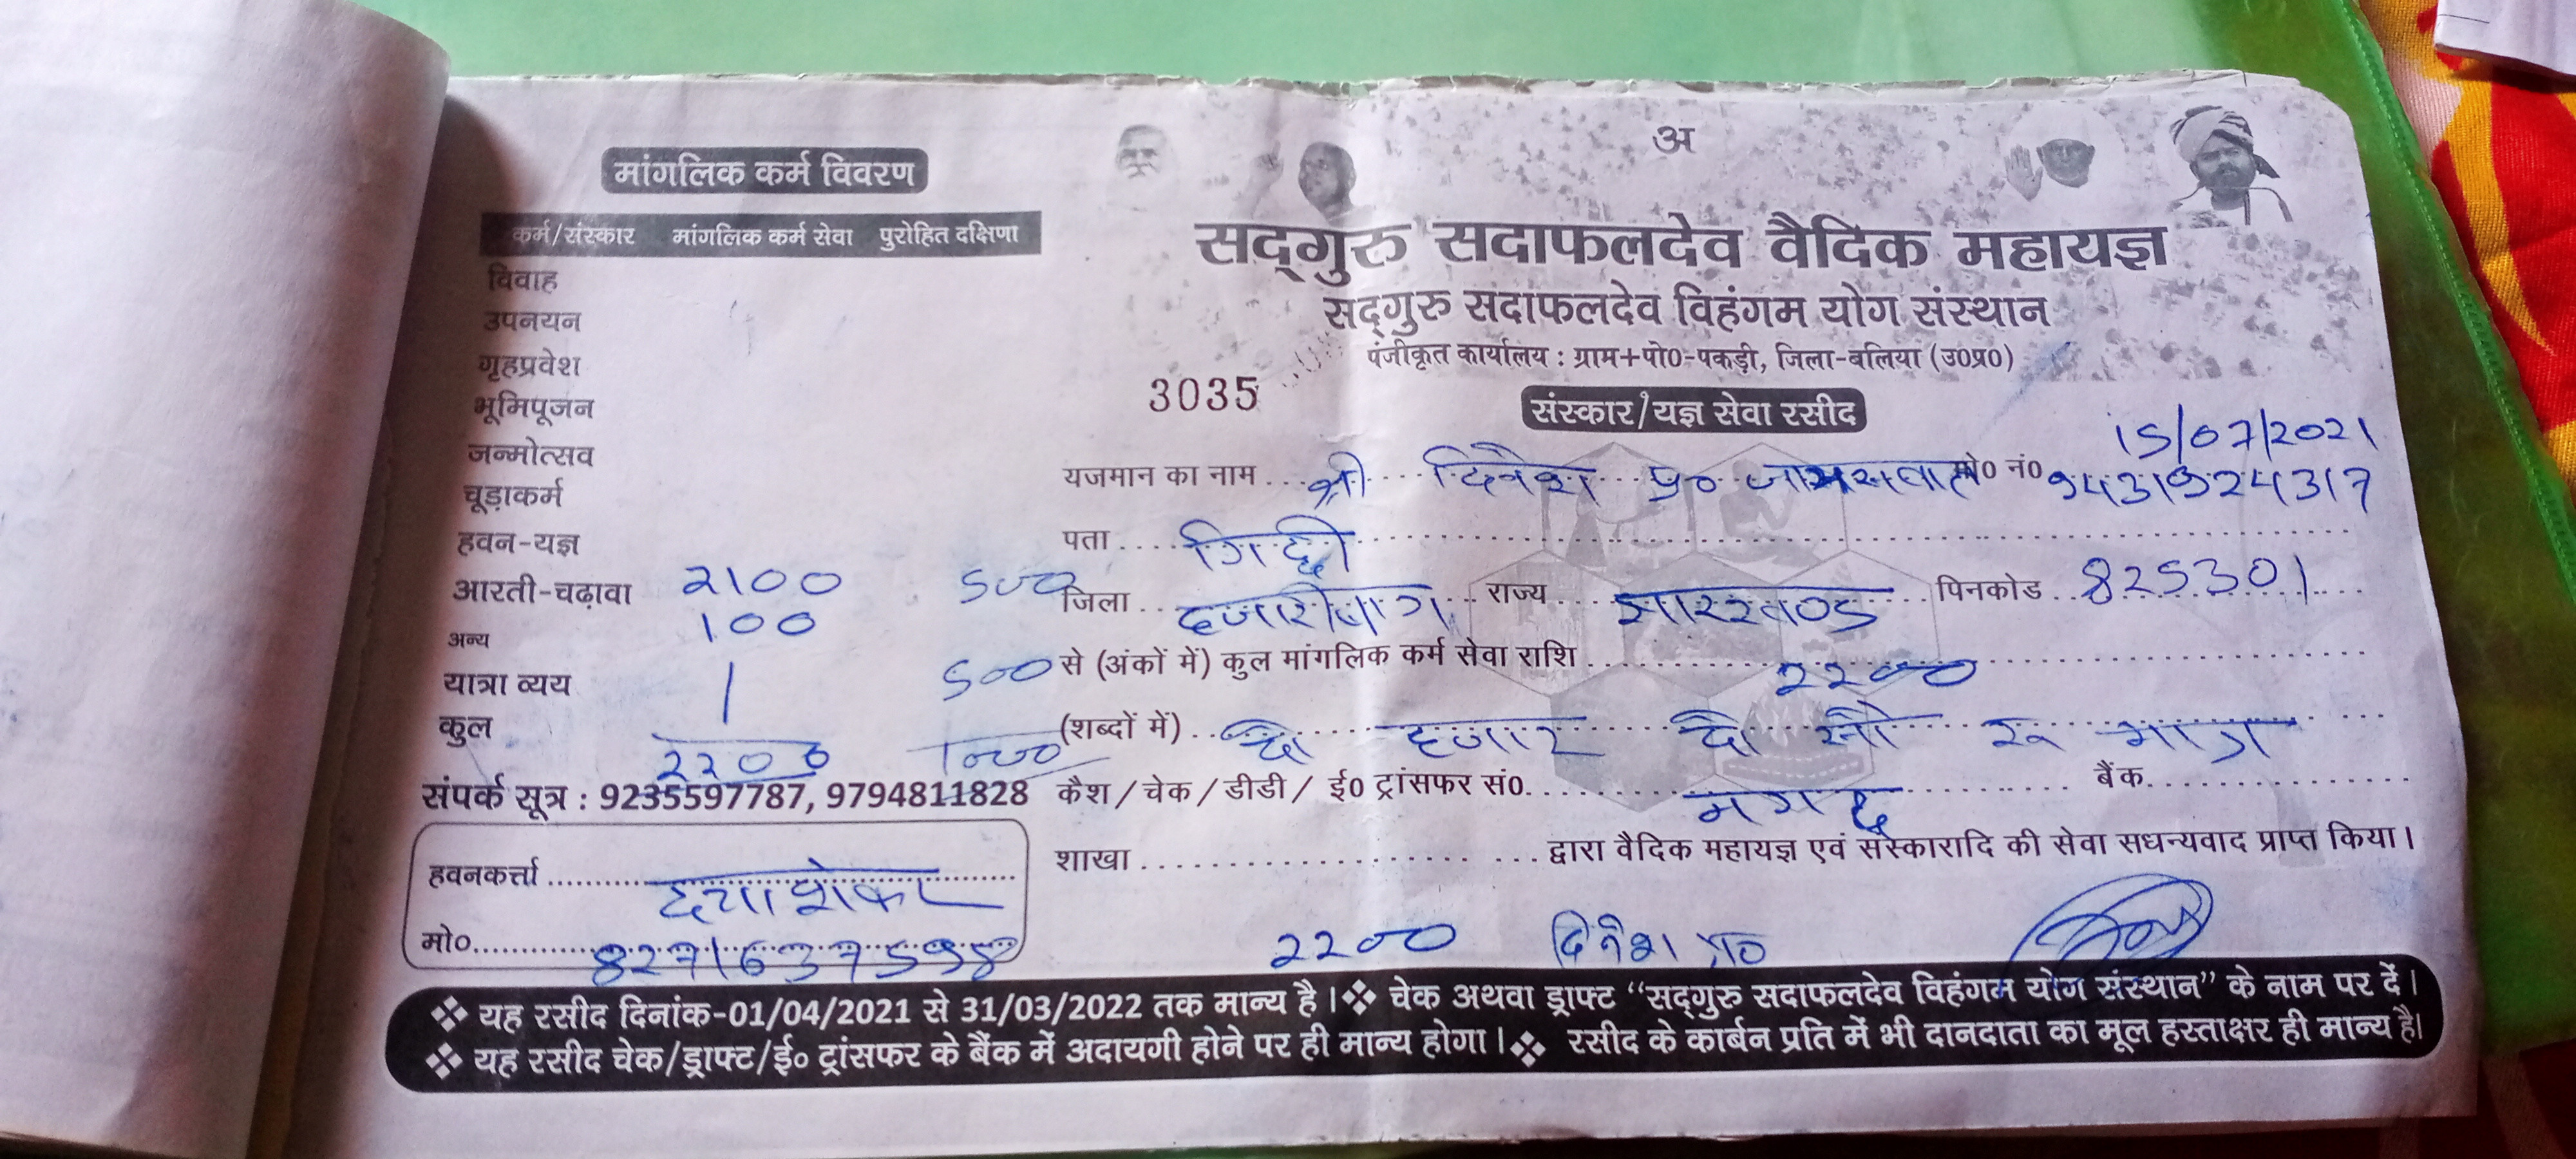 मांगलिक कर्म विवरण
कर्म/संस्कार मांगलिक कर्म सेवा पुरोहित दक्षिणा
विवाह
उपनयन
गृहप्रवेश
भूमिपूजन
जन्मोत्सव
चूड़ाकर्म
हवन-यज्ञ
आरती-चढ़ावा 2100 500
अन्य 100
यात्रा व्यय 500
कुल 2200 1000
संपर्क सूत्र : 9235597787, 9794811828
हवनकर्त्ता
मो० 8271637598
अ
सद्गुरु सदाफलदेव वैदिक महायज्ञ
सद्गुरु सदाफलदेव विहंगम योग संस्थान
पंजीकृत कार्यालय : ग्राम+पो0-पकड़ी, जिला-बलिया (उ0प्र0)
3035
संस्कार/यज्ञ सेवा रसीद
15/07/2021
यजमान का नाम श्री दिनेश प्र० जायसवाल मो0 नं0 9431924317
पता गिद्दी
जिला हजारीबाग राज्य झारखण्ड पिनकोड 825301
से (अंकों में) कुल मांगलिक कर्म सेवा राशि 2200
(शब्दों में) दो हजार दो सौ रू मात्र
कैश/चेक/डीडी/ ई0 ट्रांसफर सं0. नगद बैंक
शाखा द्वारा वैदिक महायज्ञ एवं संस्कारादि की सेवा सधन्यवाद प्राप्त किया।
2200 दिनेश प्र०
❖ यह रसीद दिनांक-01/04/2021 से 31/03/2022 तक मान्य है। ❖ चेक अथवा ड्राफ्ट "सद्गुरु सदाफलदेव विहंगम योग संस्थान" के नाम पर दें।
❖ यह रसीद चेक/ड्राफ्ट/ई० ट्रांसफर के बैंक में अदायगी होने पर ही मान्य होगा। ❖ रसीद के कार्बन प्रति में भी दानदाता का मूल हस्ताक्षर ही मान्य है।